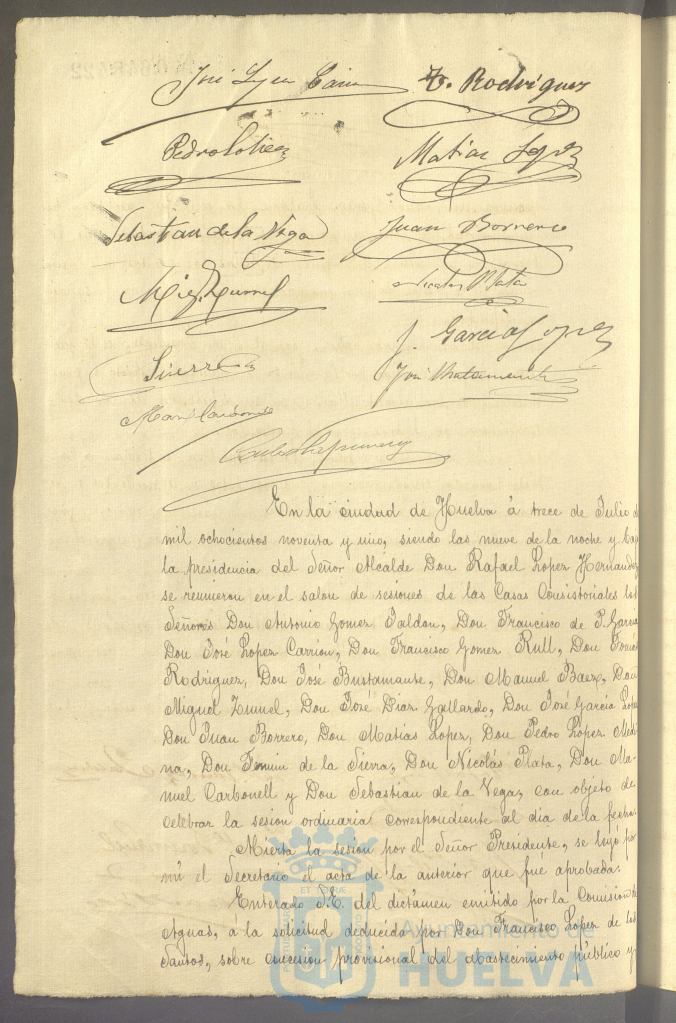 José López Carrión T. Rodríguez
Pedro López Matias Lopez
Sebastian de la Vega Juan Borrero
Mig. Zurrel Nicolas Plata
J. Garcia Lopez
Sierra José Bustamante
Man. Carbonell
En la ciudad de Huelva á trece de Julio de
mil ochocientos noventa y uno, siendo las nueve de la noche y bajo
la presidencia del Señor Alcalde Don Rafael Lopez Hernandez
se reunieron en el salon de sesiones de las Casas Consistoriales los
Señores Don Antonio Gomez Jaldon, Don Francisco de P. Garcia
Don José Lopez Carrion, Don Francisco Gomez Rull, Don Tomás
Rodriguez, Don José Bustamante, Don Manuel Baez, Don
Miguel Zurrel, Don José Diaz Gallardo, Don José Garcia Lopez
Don Juan Borrero, Don Matias Lopez, Don Pedro Lopez Medi
na, Don Fermin de la Sierra, Don Nicolás Plata, Don Ma-
nuel Carbonell y Don Sebastian de la Vega, con objeto de
celebrar la sesion ordinaria correspondiente al dia de la fecha.
Abierta la sesion por el Señor Presidente, se leyó por
mi el Secretario el acta de la anterior que fué aprobada.
Enterado S.E. del dictámen emitido por la Comision de
Aguas, á la solicitud deducida por Don Francisco Lopez de los
Santos, sobre concesion provisional del abastecimiento público y
Ayuntamiento de
HUELVA